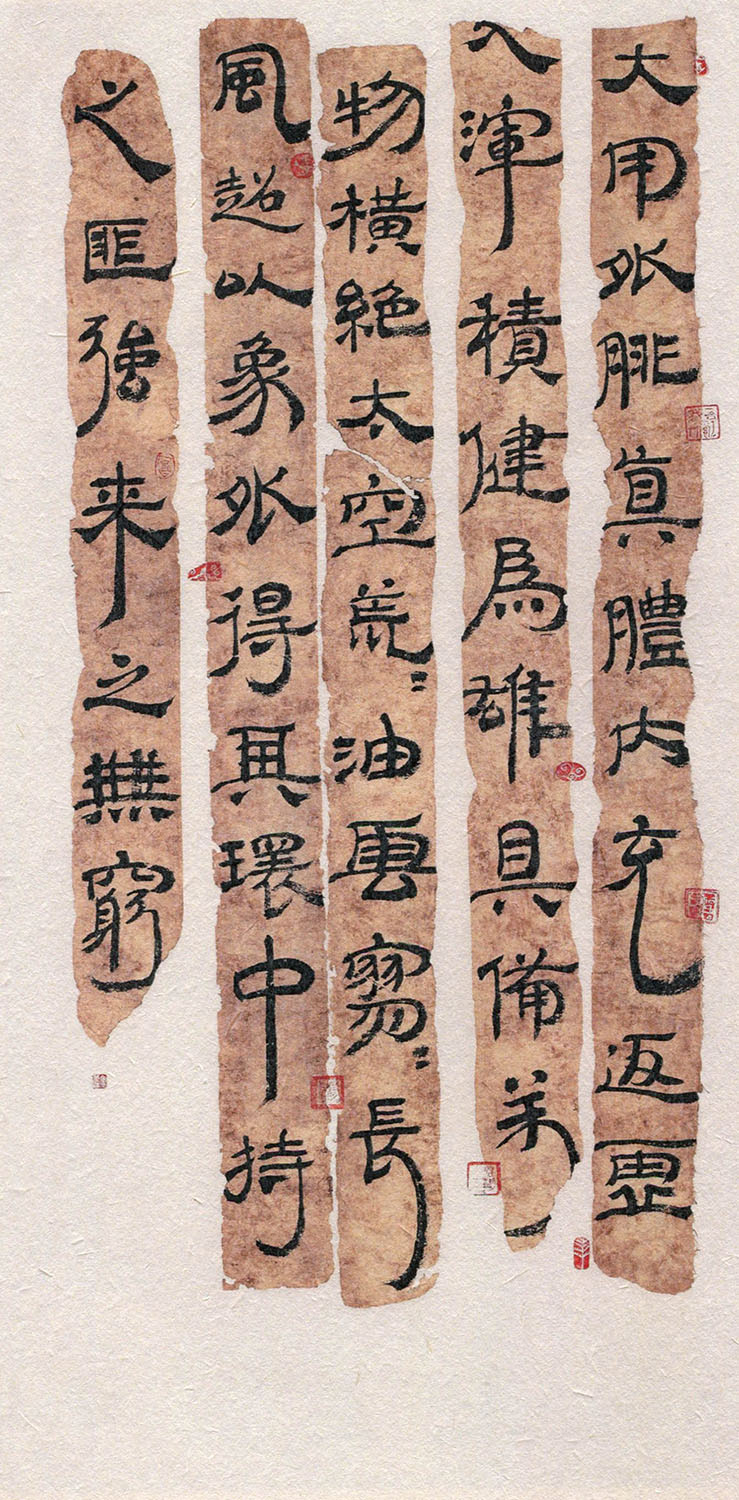 大用外腓眞體内充返虛
入渾積健爲雄具備萬
物橫絶太空荒〻油雲寥〻長
風超以象外得其環中持
之匪強来之無窮